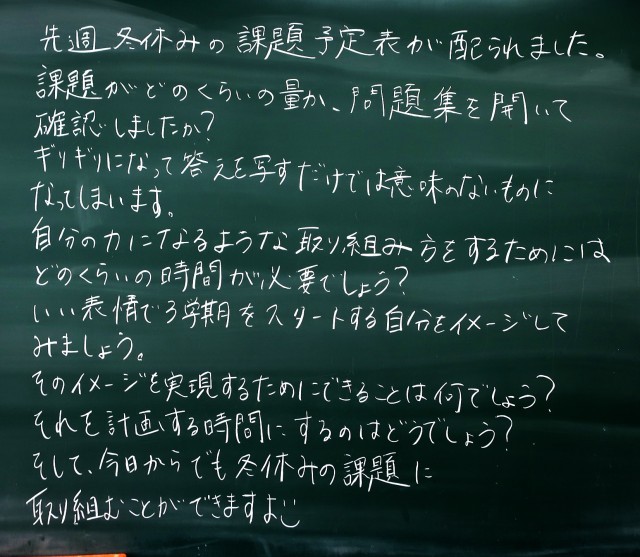 先週 冬休みの課題予定表が配られました。
課題がどのくらいの量か、問題集を開いて
確認しましたか?
ギリギリになって答えを写すだけでは意味のないものに
なってしまいます。
自分の力になるような取り組み方をするためには
どのくらいの時間が必要でしょう?
いい表情で3学期をスタートする自分をイメージして
みましょう。
そのイメージを実現するためにできることは何でしょう?
それを計画する時間にするのはどうでしょう?
そして、今日からでも冬休みの課題に
取り組むことができますよ